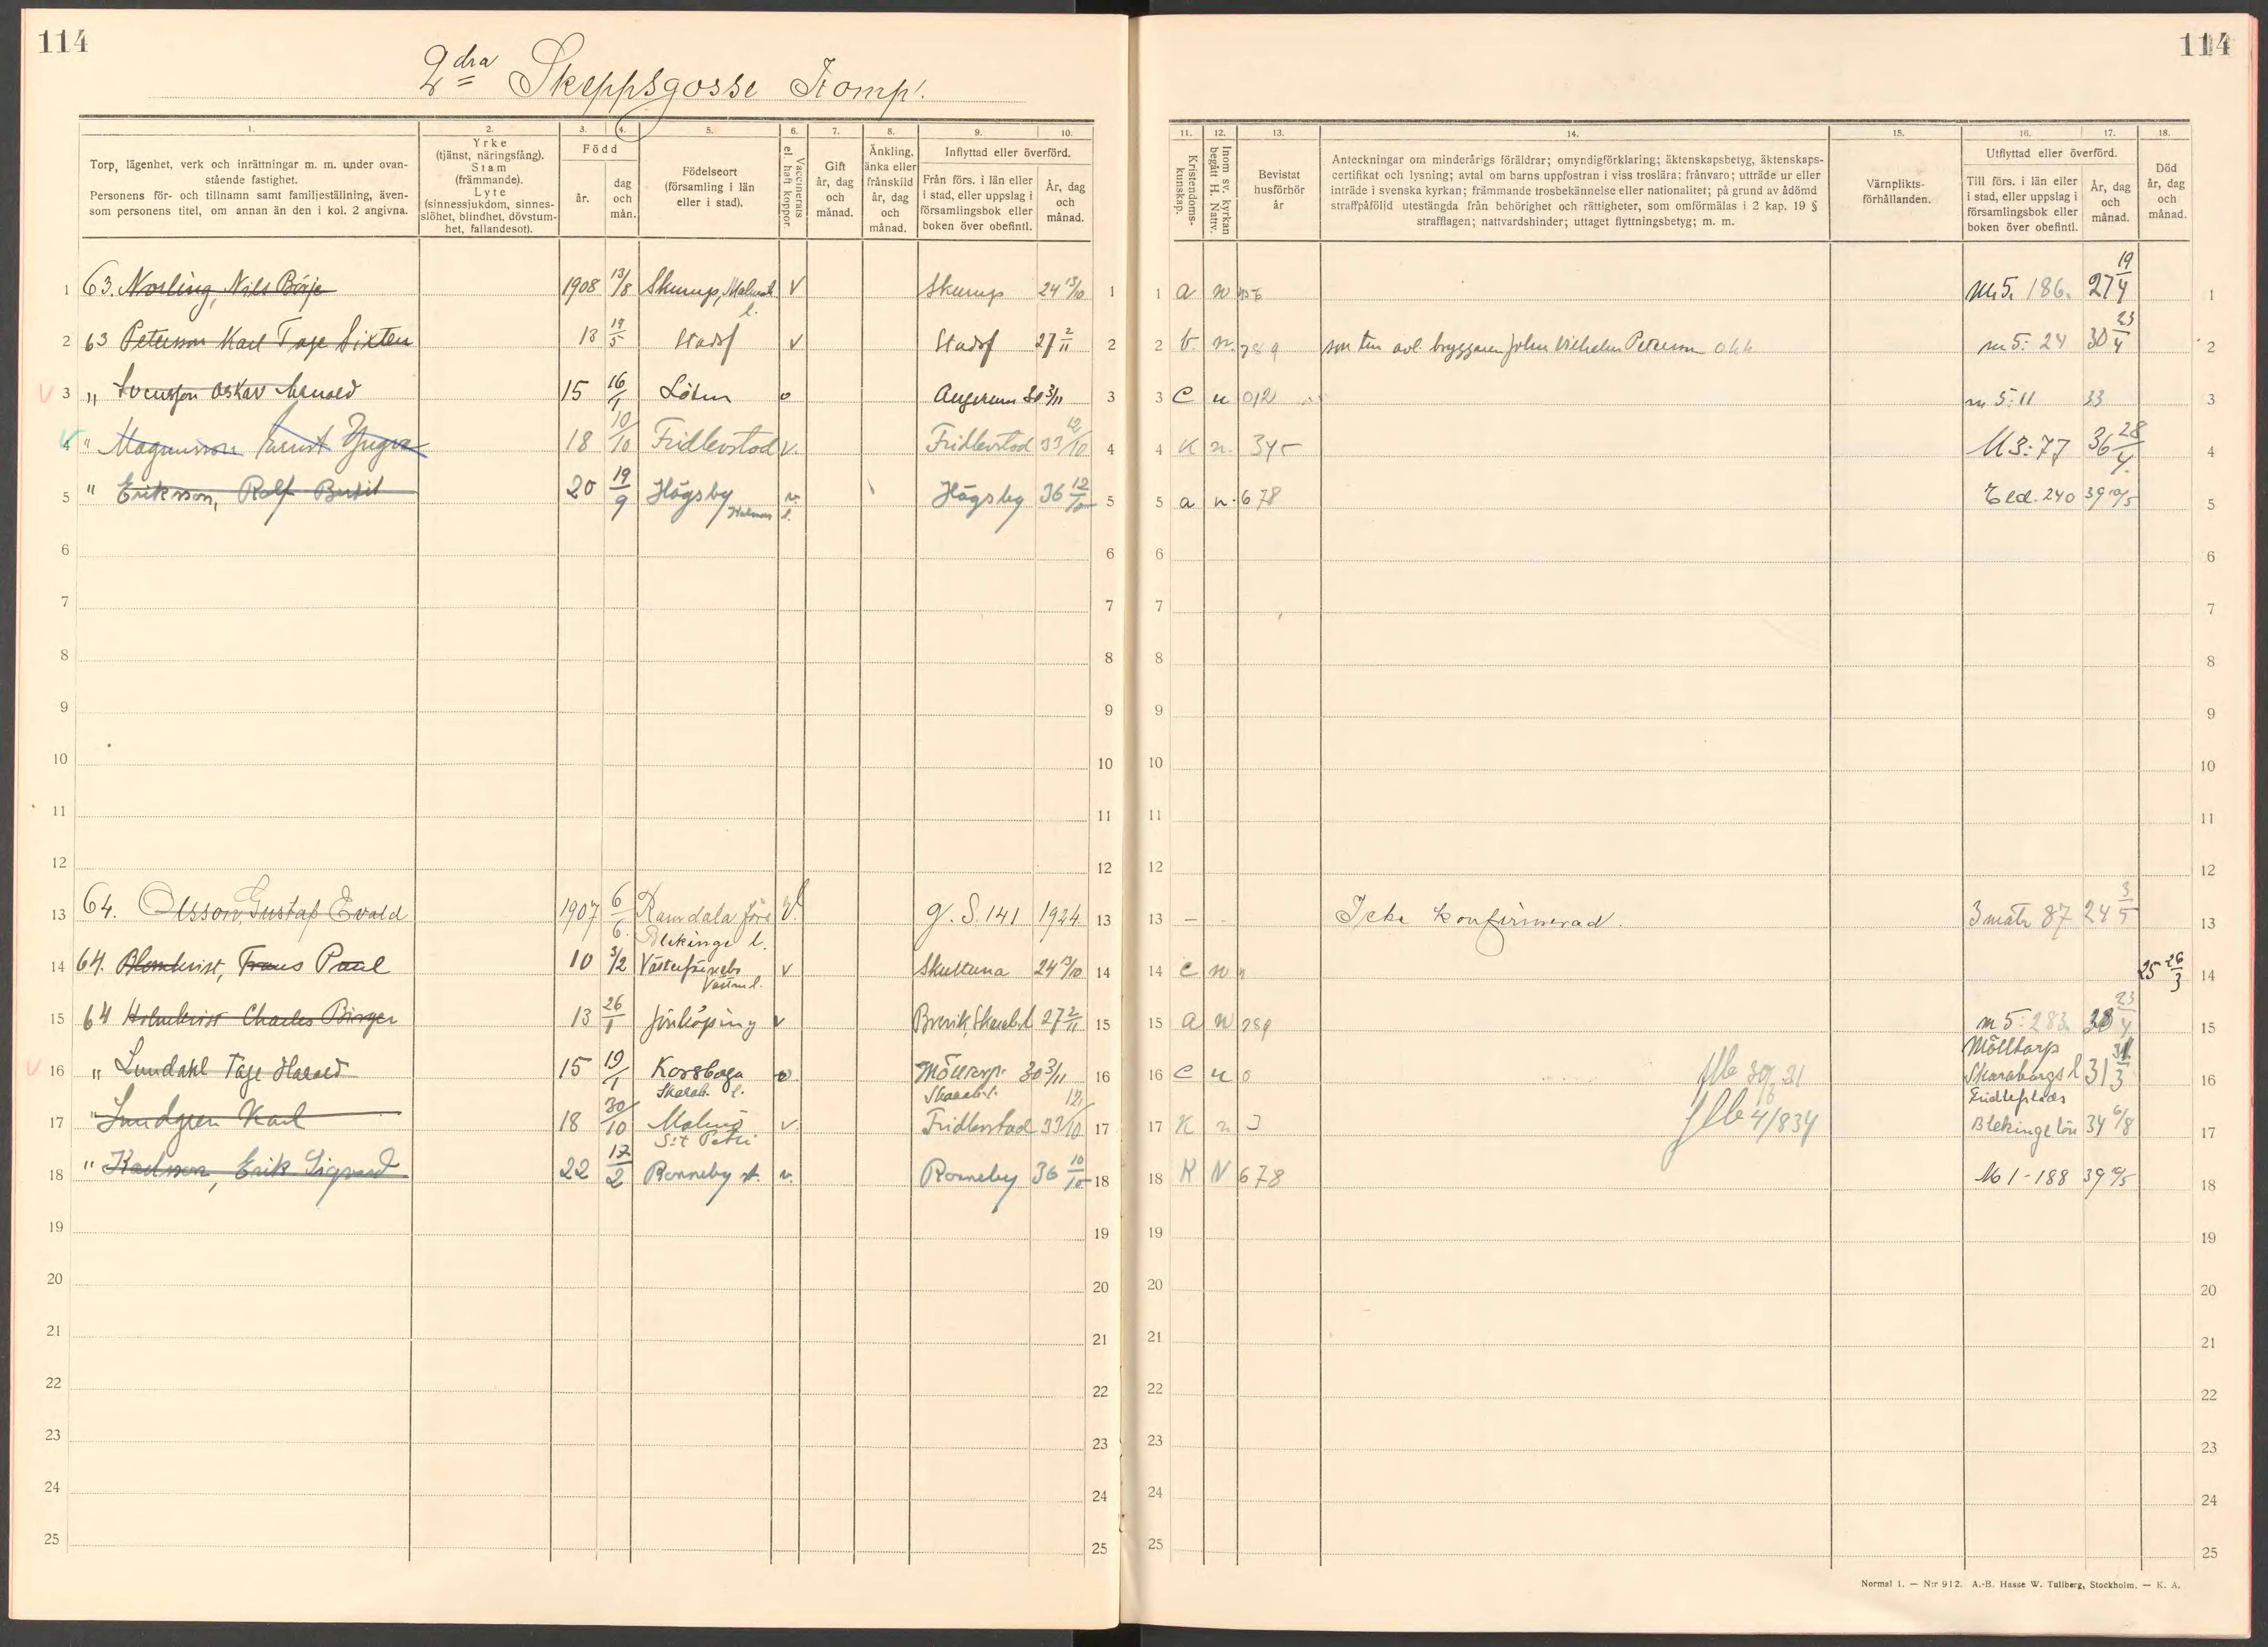 114
114
2dra Skeppsgosse Komp.
1. 2. 3. 4. 5. 6. 7. 8. 9. 10.
Torp, lägenhet, verk och inrättningar m. m. under ovan-
stående fastighet.
Personens för- och tillnamn samt familjeställning, även-
som personens titel, om annan än den i kol. 2 angivna.
Yrke
(tjänst, näringsfång).
Stam
(främmande).
Lyte
(sinnessjukdom, sinnes-
slöhet, blindhet, dövstum-
het, fallandesot).
Född
år.
dag
och
mån.
Födelseort
(församling i län
eller i stad).
Vaccinerats
el. haft koppor.
Gift
år, dag
och
månad.
Änkling,
änka eller
frånskild
år, dag
och
månad.
Inflyttad eller överförd.
Från förs. i län eller
i stad, eller uppslag i
församlingsbok eller
boken över obefintl.
År, dag
och
månad.
11. 12. 13. 14. 15. 16. 17. 18.
Kristendoms-
kunskap.
Inom sv. kyrkan
begått H. Nattv.
Bevistat
husförhör
år
Anteckningar om minderårigs föräldrar; omyndigförklaring; äktenskapsbetyg, äktenskaps-
certifikat och lysning; avtal om barns uppfostran i viss troslära; frånvaro; utträde ur eller
inträde i svenska kyrkan; främmande trosbekännelse eller nationalitet; på grund av ådömd
straffpåföljd utestängda från behörighet och rättigheter, som omförmälas i 2 kap. 19 §
strafflagen; nattvardshinder; uttaget flyttningsbetyg; m. m.
Värnplikts-
förhållanden.
Utflyttad eller överförd.
Till förs. i län eller
i stad, eller uppslag i
församlingsbok eller
boken över obefintl.
År, dag
och
månad.
Död
år, dag
och
månad.
1 63. Norling, Nils Börje 1908 13/8 Skurup, Malmöh l. v Skurup 24 13/10 1 1 a n 186. 27 19/4 1
2 63 Petersson Karl Tage Sixten 13 19/5 Stadsf v Stadsf 27 2/11 2 2 b. n. 789 son till avl. bryggaren John Vilhelm Petersson o.h.h. m 5: 24 30 23/4 2
3 " Svensson Oskar Arnold 15 16/1 v 30 3/11 3 3 C n 012 m 5: 11 33 3
4 " Magnusson Ernst Yngve 18 10/10 Fridlevstad v. Fridlevstad 33 12/10 4 4 K n. 345 M 3: 77 36 28/4. 4
5 " Eriksson, Rolf Bertil 20 19/9 Högsby Kalmar l. v. Högsby 36 12/10 5 5 a n. 678 Eld. 240 39 10/5 5
6 6 6 6
7 7 7 7
8 8 8 8
9 9 9 9
10 10 10 10
11 11 11 11
12 12 12 12
13 64. Olsson, Gustaf Evald 1907 6/6 Ramdala förs Blekinge l. v. g. S. 141 1924 13 13 – - Icke konfirmerad. 3 matr 87 24 3/5 13
14 64. Blomkvist, Frans Paul 10 3/2 v Skultuna 14 14 c n 25 26/3 14
15 64 Holmkvist Charles Birger 13 26/1 Jönköping v Brevik, Skarab. l 27 2/11 15 15 a n 789 m 5: 283. 15
16 " Lundahl Tage Harald 15 19/1 Korsberga Skarab. l. v Mölltorp Skarab. l. 30 3/11 16 16 C n 0 flb Mölltorp Skaraborgs l 31 31/3 16
17 " Lundgren Karl 18 30/10 Malmö S:t Petri v. Fridlevstad 33 12/10 17 17 K n 3 flb 4/8 34 Blekinge län 34 6/8 17
18 " Karlsson, Erik Sigvard 22 17/2 Ronneby st. v. Ronneby 36 10/10 18 18 K N 678 M 1-188 39 10/5 18
19 19 19 19
20 20 20 20
21 21 21 21
22 22 22 22
23 23 23 23
24 24 24 24
25 25 25 25
Normal 1. — N:r 912. A.-B. Hasse W. Tullberg, Stockholm. — K. A.